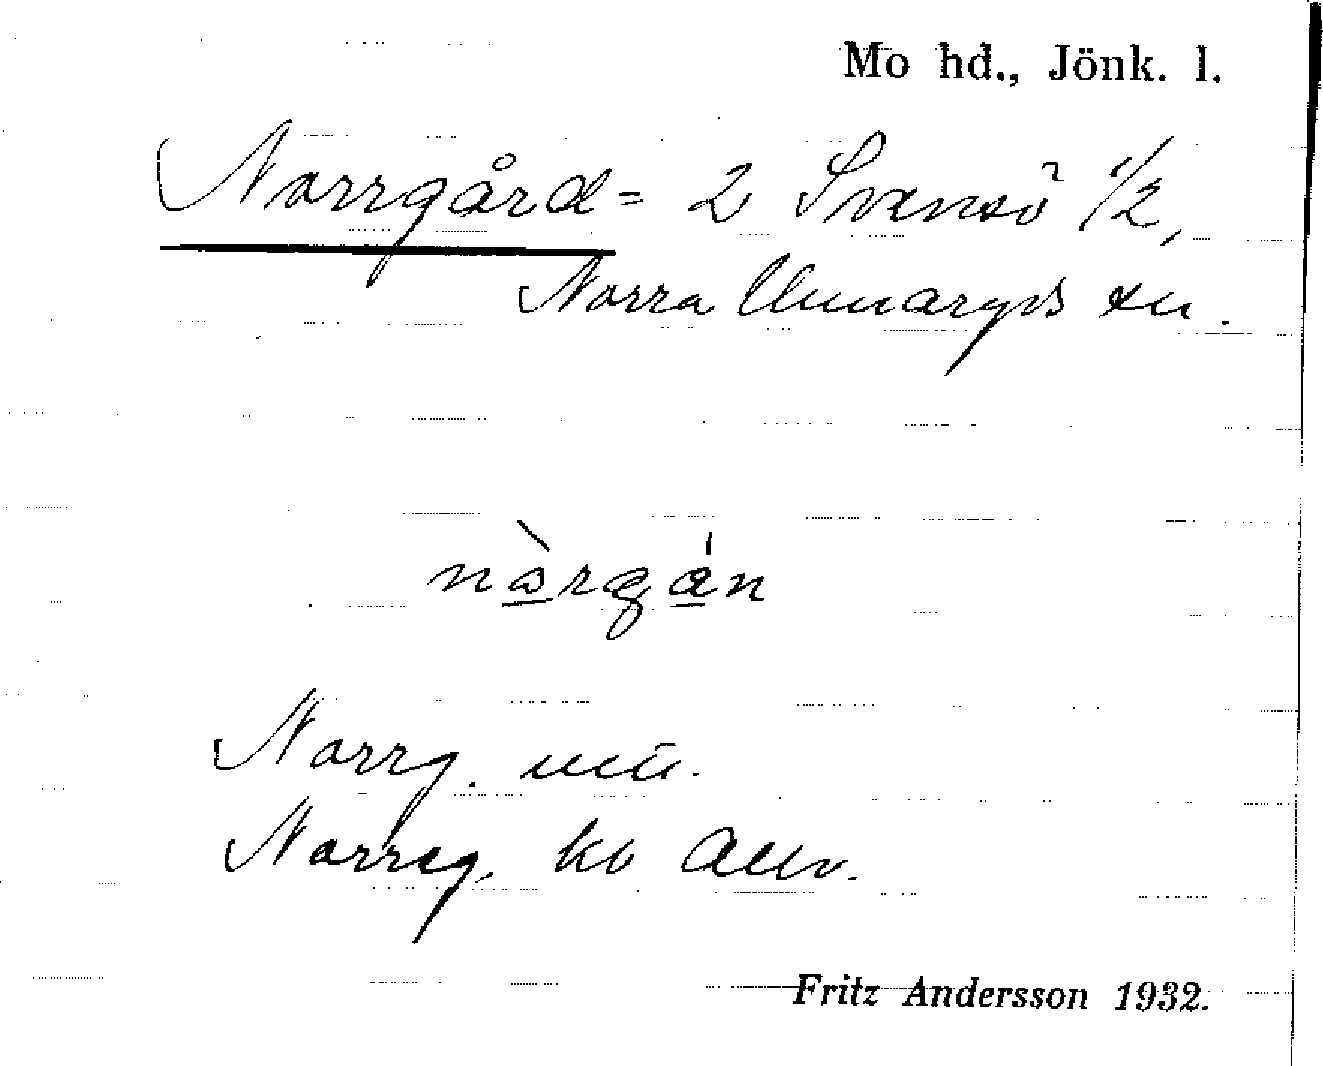 Mo hd., Jönk. l.
Norrgård = 2 Svensö 1/2,
Norra Unnaryds sn.
nàrgán
Norrg. mü.
Norreg. kb Allm.
Fritz Andersson 1932.